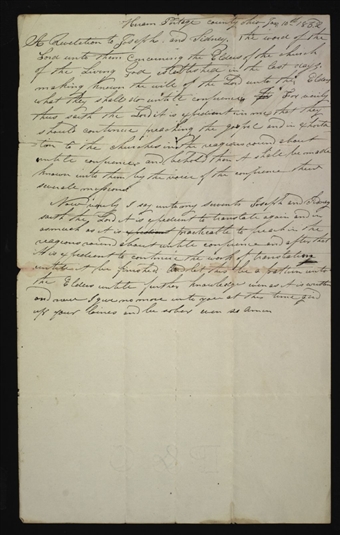 Hiram Portage County Ohio Jany 10th 1832
A Revelation to Joseph and Sidney. The word of the
Lord unto them concerning the Elders of the church
of the Living God established in the last days
making known the will of the Lord unto the Elders
what they shall do untill conference For verily
thus saith the Lord it is expedient in me that they
should continue preaching the gospel and in exhorta
tion to the churches in the regions round about
untill conference and behold then it shall be made
known unto them by the voice of the conference their
severale missions
Now verily I say unto my servents Joseph and Sidney
saith the Lord it is expedient to translate again and in
asmuch as it is practicable to preach in the
regions round about untill conference and after that
it is expedient to continue the work of translation
untill it be finished and let this be a pattern unto
the Elders untill further knowledge even as it is written
and now I give no more unto you at this time gird
up your loines and be sober even so Amen